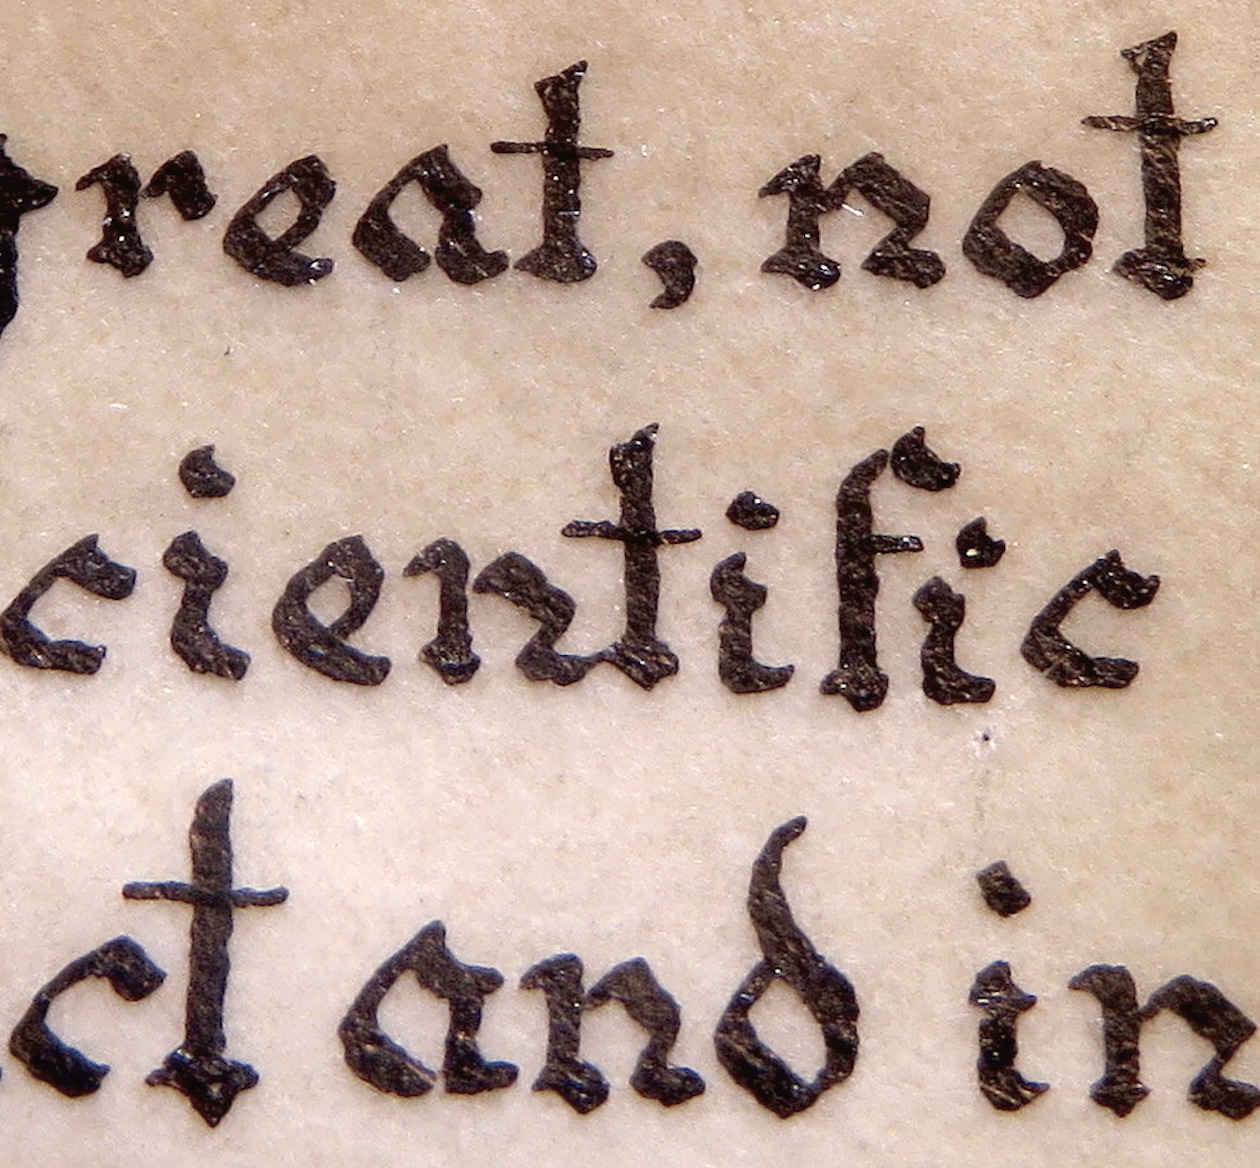 great, not
cientific
ct and in